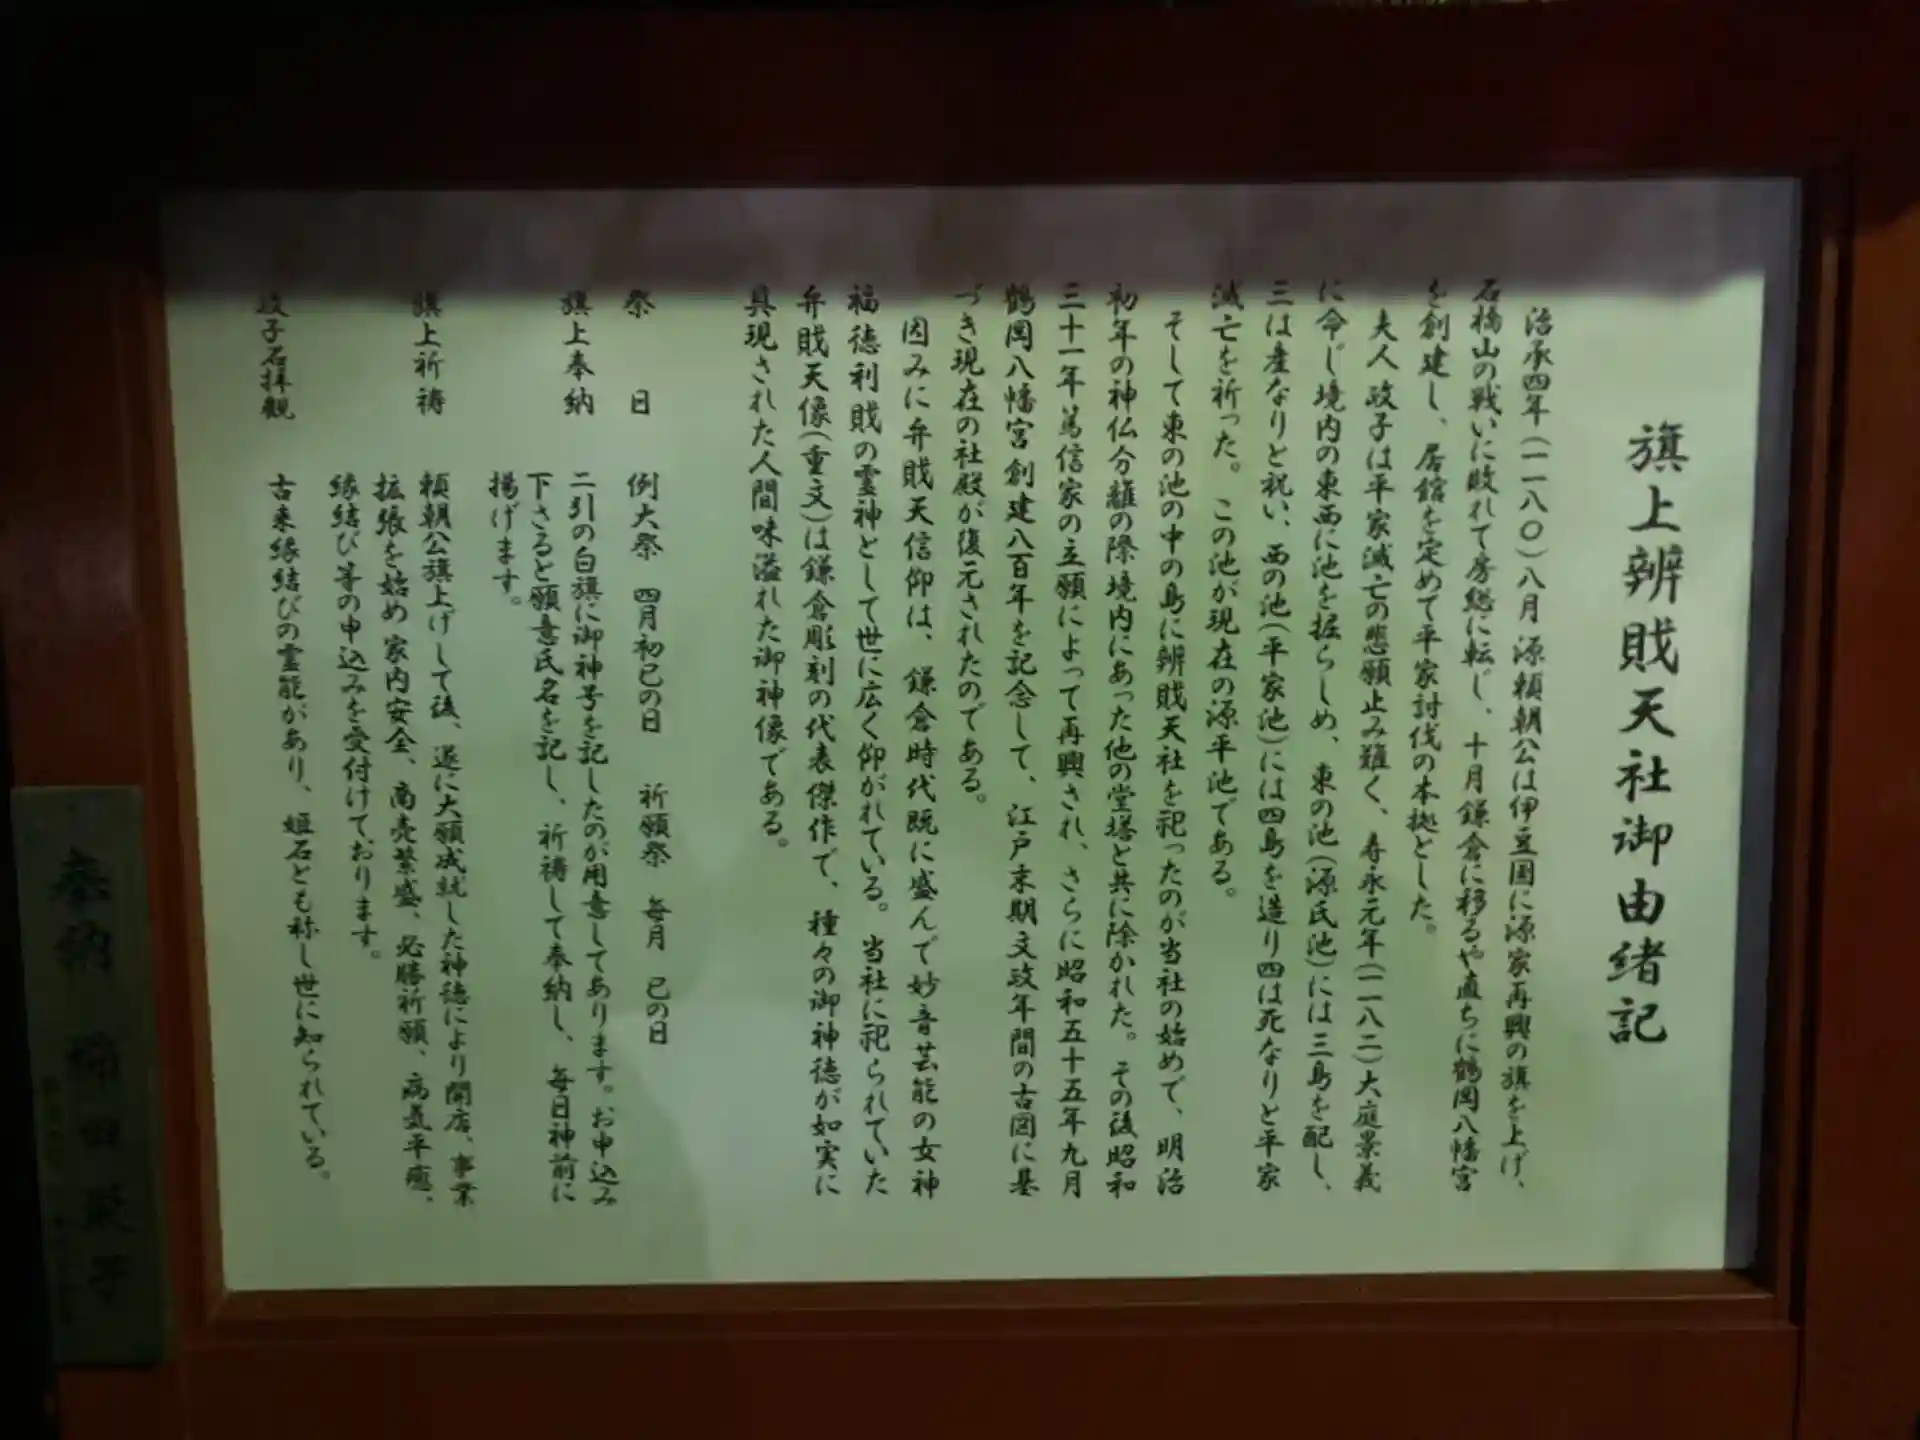 旗上辨財天社御由緒記
治承四年(一一八〇)八月 源頼朝公は伊豆国に源家再興の旗を上げ、
石橋山の戦いに敗れて房総に転じ、十月鎌倉に移るや直ちに鶴岡八幡宮
を創建し、居館を定めて平家討伐の本拠とした。
夫人 政子は平家滅亡の悲願止み難く、寿永元年(一一八二)大庭景義
に命じ境内の東西に池を掘らしめ、東の池(源氏池)には三島を配し、
三は産なりと祝い、西の池(平家池)には四島を造り四は死なりと平家
滅亡を祈った。この池が現在の源平池である。
そして東の池の中の島に辨財天社を祀ったのが当社の始めで、明治
初年の神仏分離の際境内にあった他の堂塔と共に除かれた。その後昭和
三十一年篤信家の立願によって再興され、さらに昭和五十五年九月
鶴岡八幡宮創建八百年を記念して、江戸末期文政年間の古図に基
づき現在の社殿が復元されたのである。
因みに弁財天信仰は、鎌倉時代既に盛んで妙音芸能の女神
福徳利財の霊神として世に広く仰がれている。当社に祀られていた
弁財天像(重文)は鎌倉彫刻の代表傑作で、種々の御神徳が如実に
具現された人間味溢れた御神像である。
祭 日 例大祭 四月初巳の日 祈願祭 毎月 巳の日
旗上奉納 二引の白旗に御神号を記したのが用意してあります。お申込み
下さると願意氏名を記し、祈祷して奉納し、毎日神前に
揚げます。
旗上祈祷 頼朝公旗上げして後、遂に大願成就した神徳により開店、事業
拡張を始め 家内安全、商売繁盛、必勝祈願、病気平癒、
縁結び等の申込みを受付けております。
政子石拝観 古来縁結びの霊能があり、姫石とも称し世に知られている。
奉納